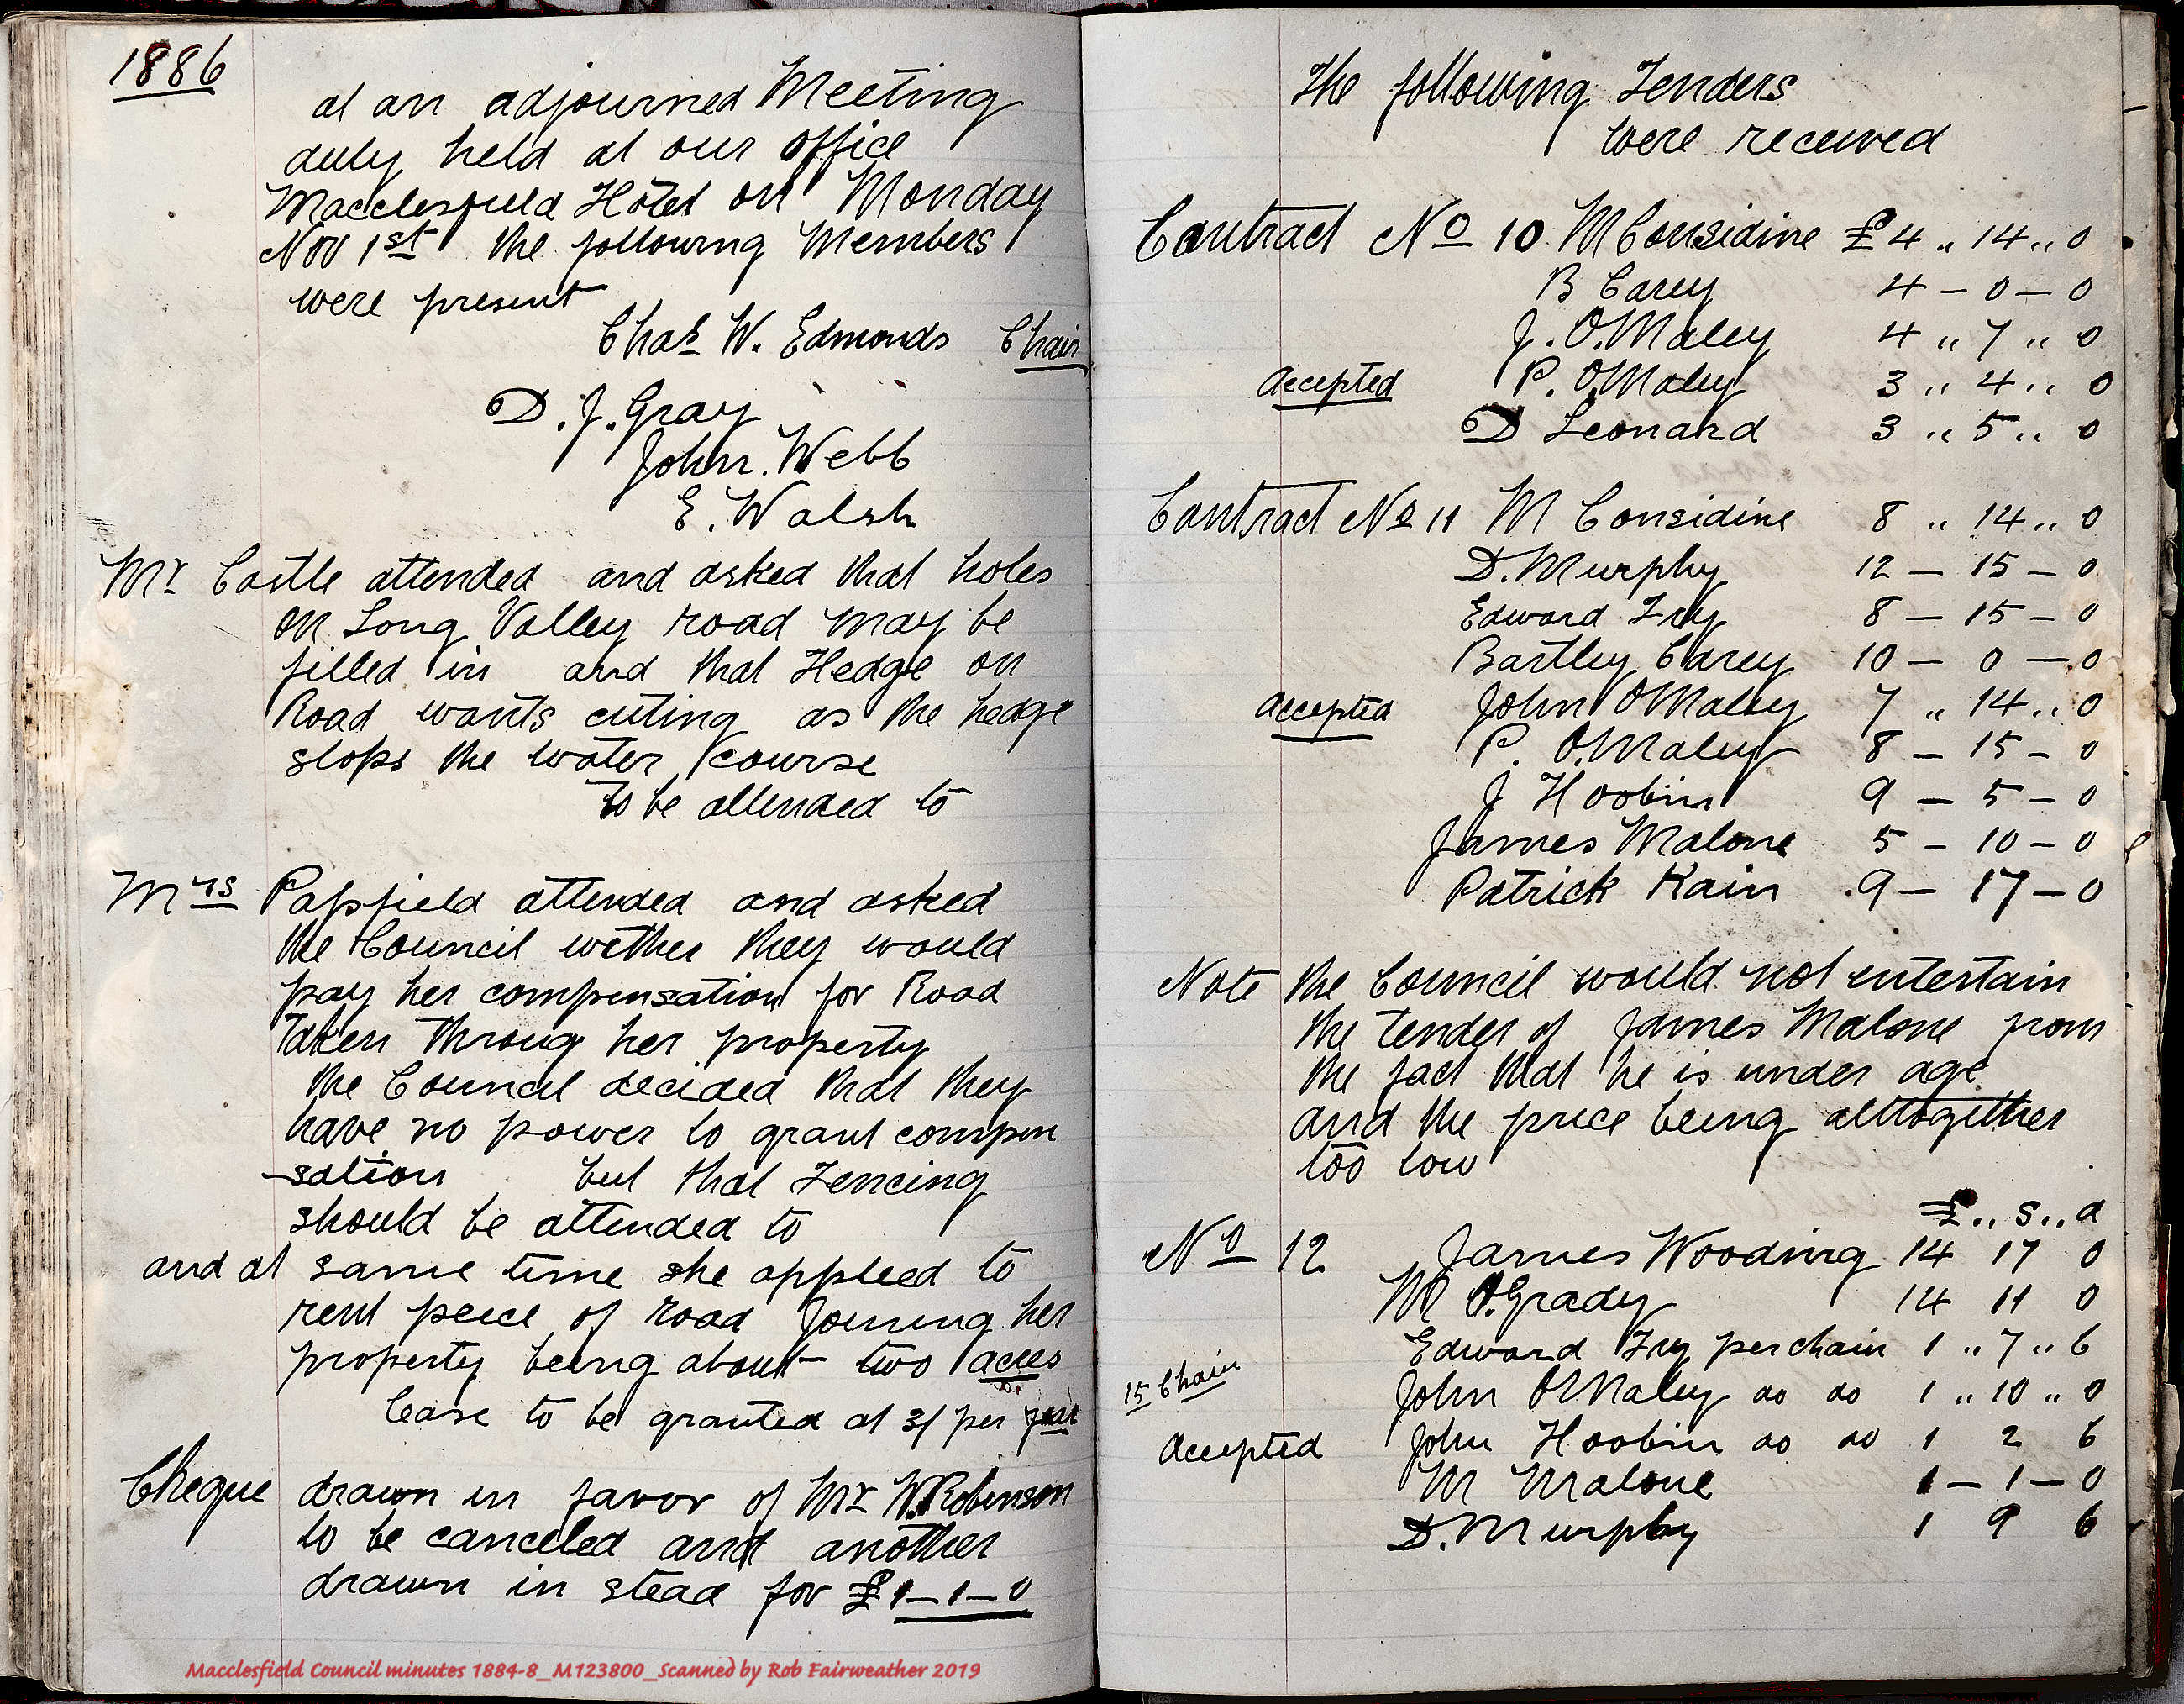 1886
at an adjourned Meeting
duly held at our office
Macclesfield Hotel on Monday
Nov 1st the following Members
were present
Chas W. Edmonds Chair
D. J. Gray
John. Webb
E. Walsh
Mr Castle attended and asked that holes
on Long Valley road may be
filled in and that Hedge on
Road wants cuting as the hedge
stops the water course
to be attended to
Mrs Passfield attended and asked
the Council wether they would
pay her compensation for Road
Taken Throug her property
the Council decided that they
have no power to grant compen
-sation but that Fencing
should be attended to
and at same time she applied to
rent peice of road Joining her
property being about two acres
lease to be granted at 3/ per year
Cheque drawn in favor of Mr W. Robinson
to be canceled and another
drawn in stead for £1-1-0
The following Tenders
were received
Contract No 10 M Considine £4 ,, 14 ,, 0
B Carey 4 - 0 - 0
J. O.Maley 4 ,, 7 ,, 0
Accepted P. OMaley 3 ,, 4 ,, 0
D Leonard 3 ,, 5 ,, 0
Contract No 11 M Considine 8 ,, 14 ,, 0
D. Murphy 12 - 15 - 0
Edward Fry 8 - 15 - 0
Bartley Carey 10 - 0 - 0
Accepted John OMaley 7 ,, 14 ,, 0
P. O.Maley 8 - 15 - 0
J Hoobin 9 - 5 - 0
James Malone 5 - 10 - 0
Patrick Kain 9 - 17 - 0
Note the Council would not entertain
the tender of James Malone from
the fact that he is under age
and the price being alltogether
too low
£ ,, s ,, d
No 12 James Wooding 14 17 0
M O.Grady 14 11 0
Edward Fry per chain 1 ,, 7 ,, 6
15 Chain John OMaley do do 1 ,, 10 ,, 0
Accepted John Hoobin do do 1 2 6
M Malone 1 - 1 - 0
D. Murphy 1 9 6
Macclesfield Council minutes 1884-8_M123800_Scanned by Rob Fairweather 2019